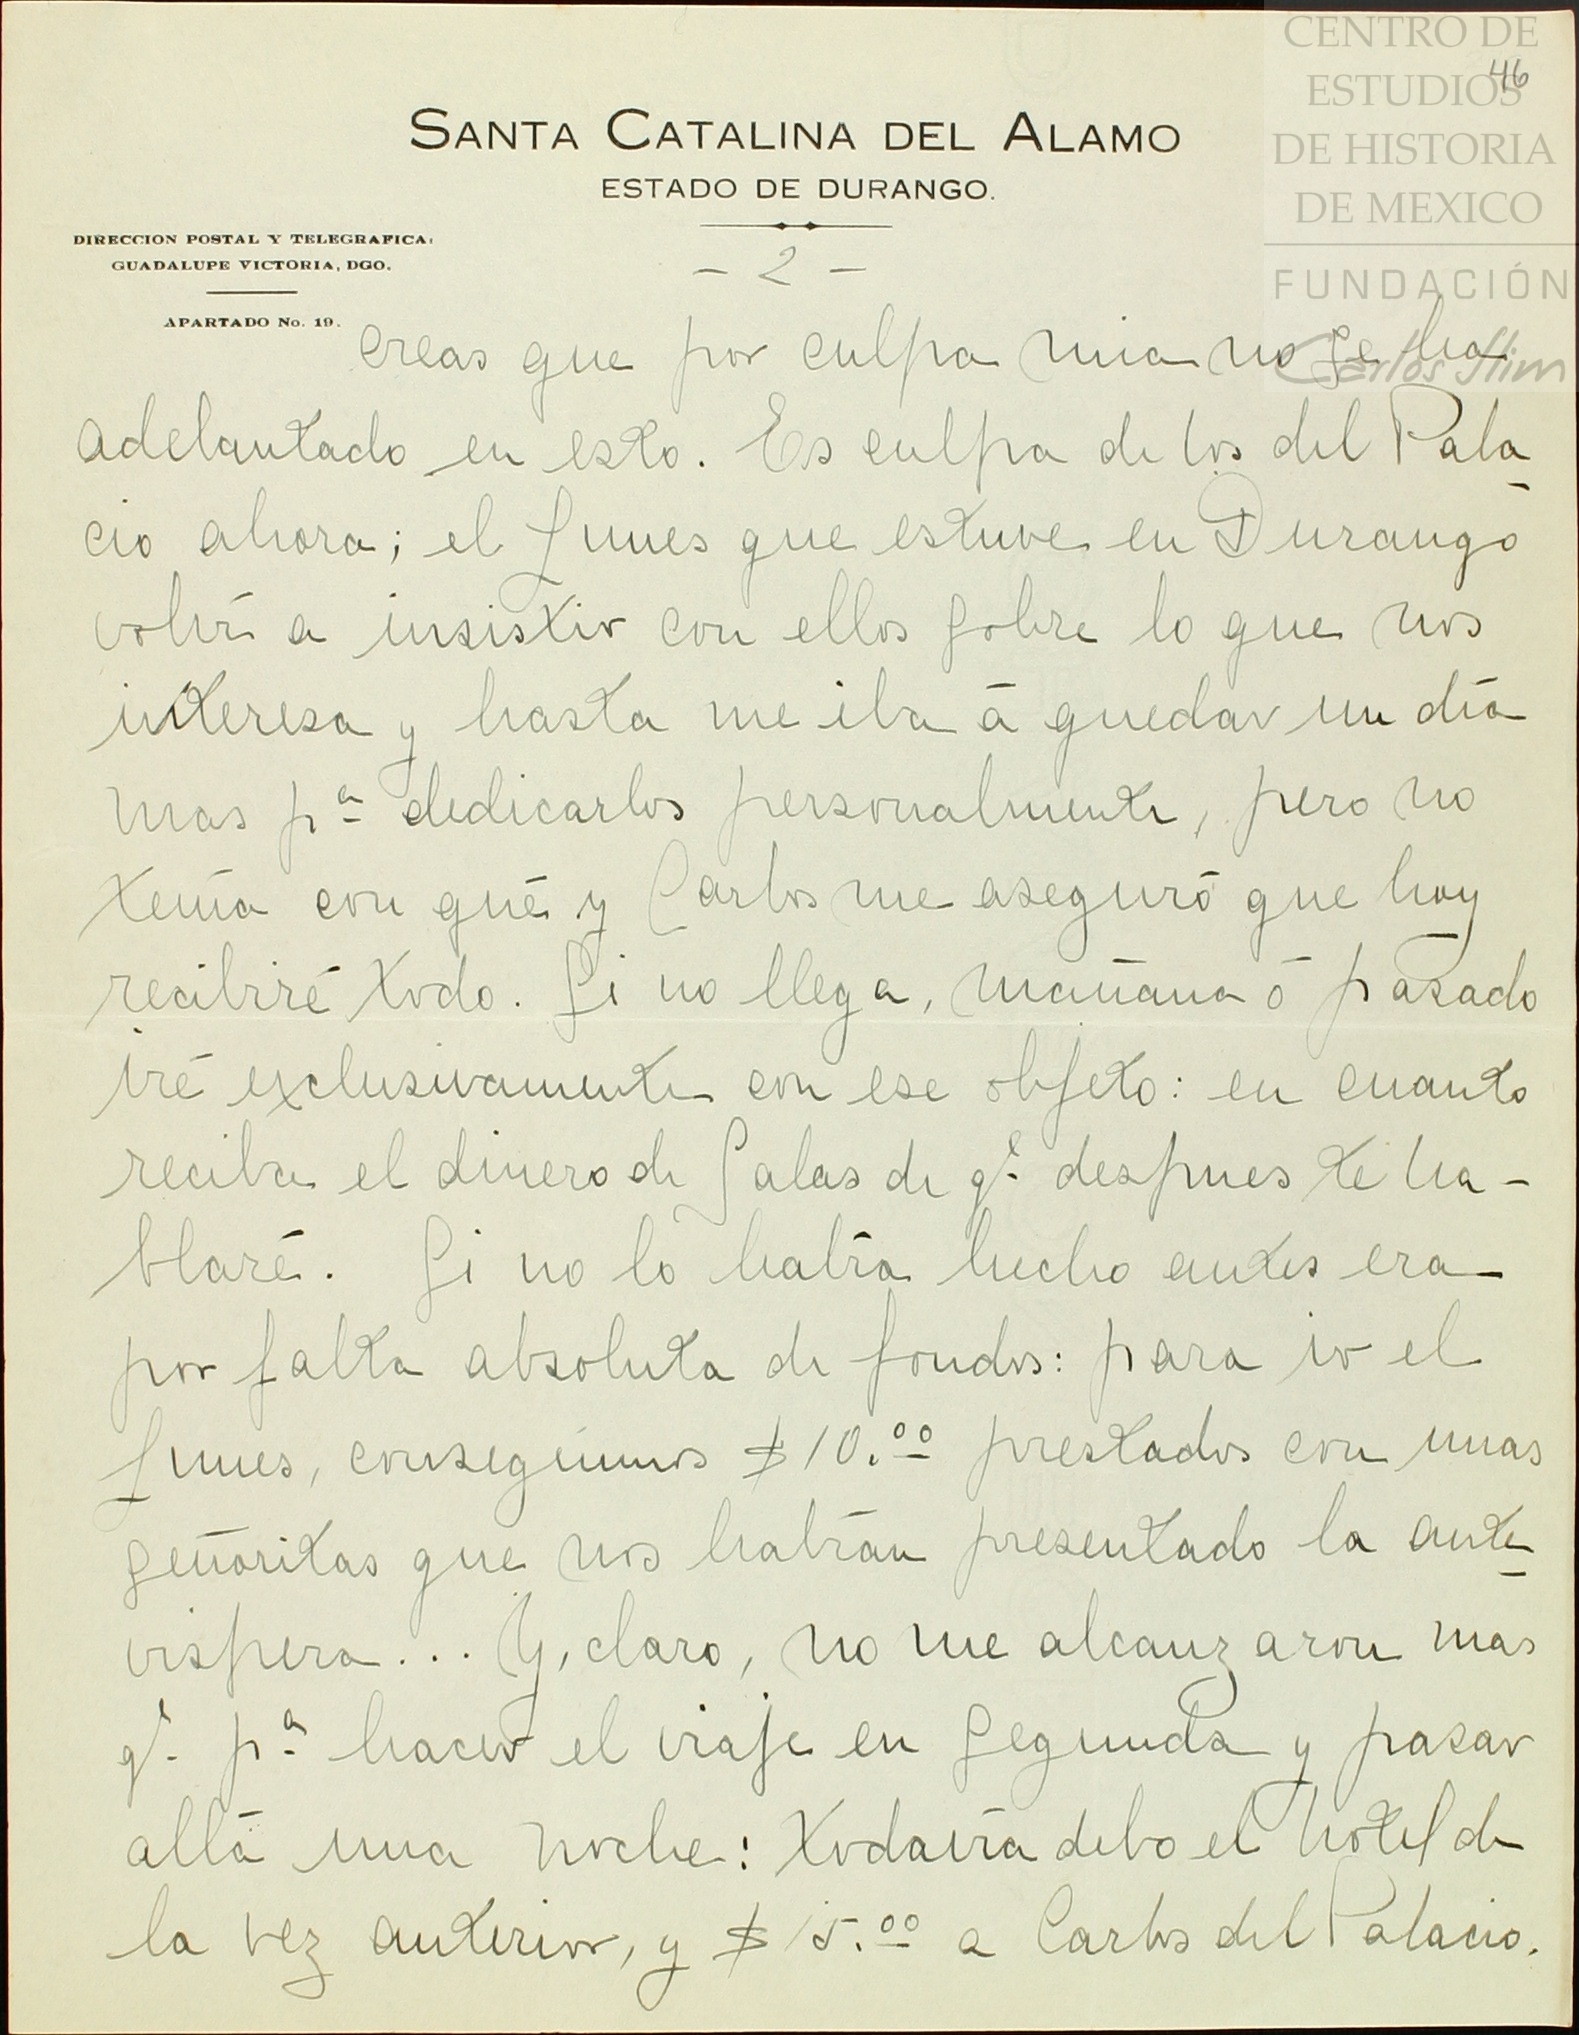 CENTRO DE
ESTUDIOS
46
DE HISTORIA
DE MEXICO
FUNDACIÓN
Carlos Slim
SANTA CATALINA DEL ALAMO
ESTADO DE DURANGO.
DIRECCION POSTAL Y TELEGRAFICA:
GUADALUPE VICTORIA, DGO.
APARTADO No. 19.
- 2 -
creas que por culpa mia no se ha
adelantado en esto. Es culpa de los del Pala
cio ahora; el Lunes que estuve en Durango
volví a insistir con ellos sobre lo que nos
interesa y hasta me iba á quedar un día
mas pª dedicarlos personalmente, pero no
tenía con qué y Carlos me aseguró que hoy
recibiré todo. Si no llega, mañana ó pasado
iré exclusivamente con ese objeto: en cuanto
reciba el dinero de Salas de q.e despues te ha-
blaré. Si no lo había hecho antes era
por falta absoluta de fondos: para ir el
Lunes, conseguimos $10.00 prestados con unas
señoritas que nos habían presentado la ante
vispera... Y, claro, no me alcanzaron mas
q.e pª hacer el viaje en segunda y pasar
allá una noche: todavía debo el hotel de
la vez anterior, y $15.00 a Carlos del Palacio.